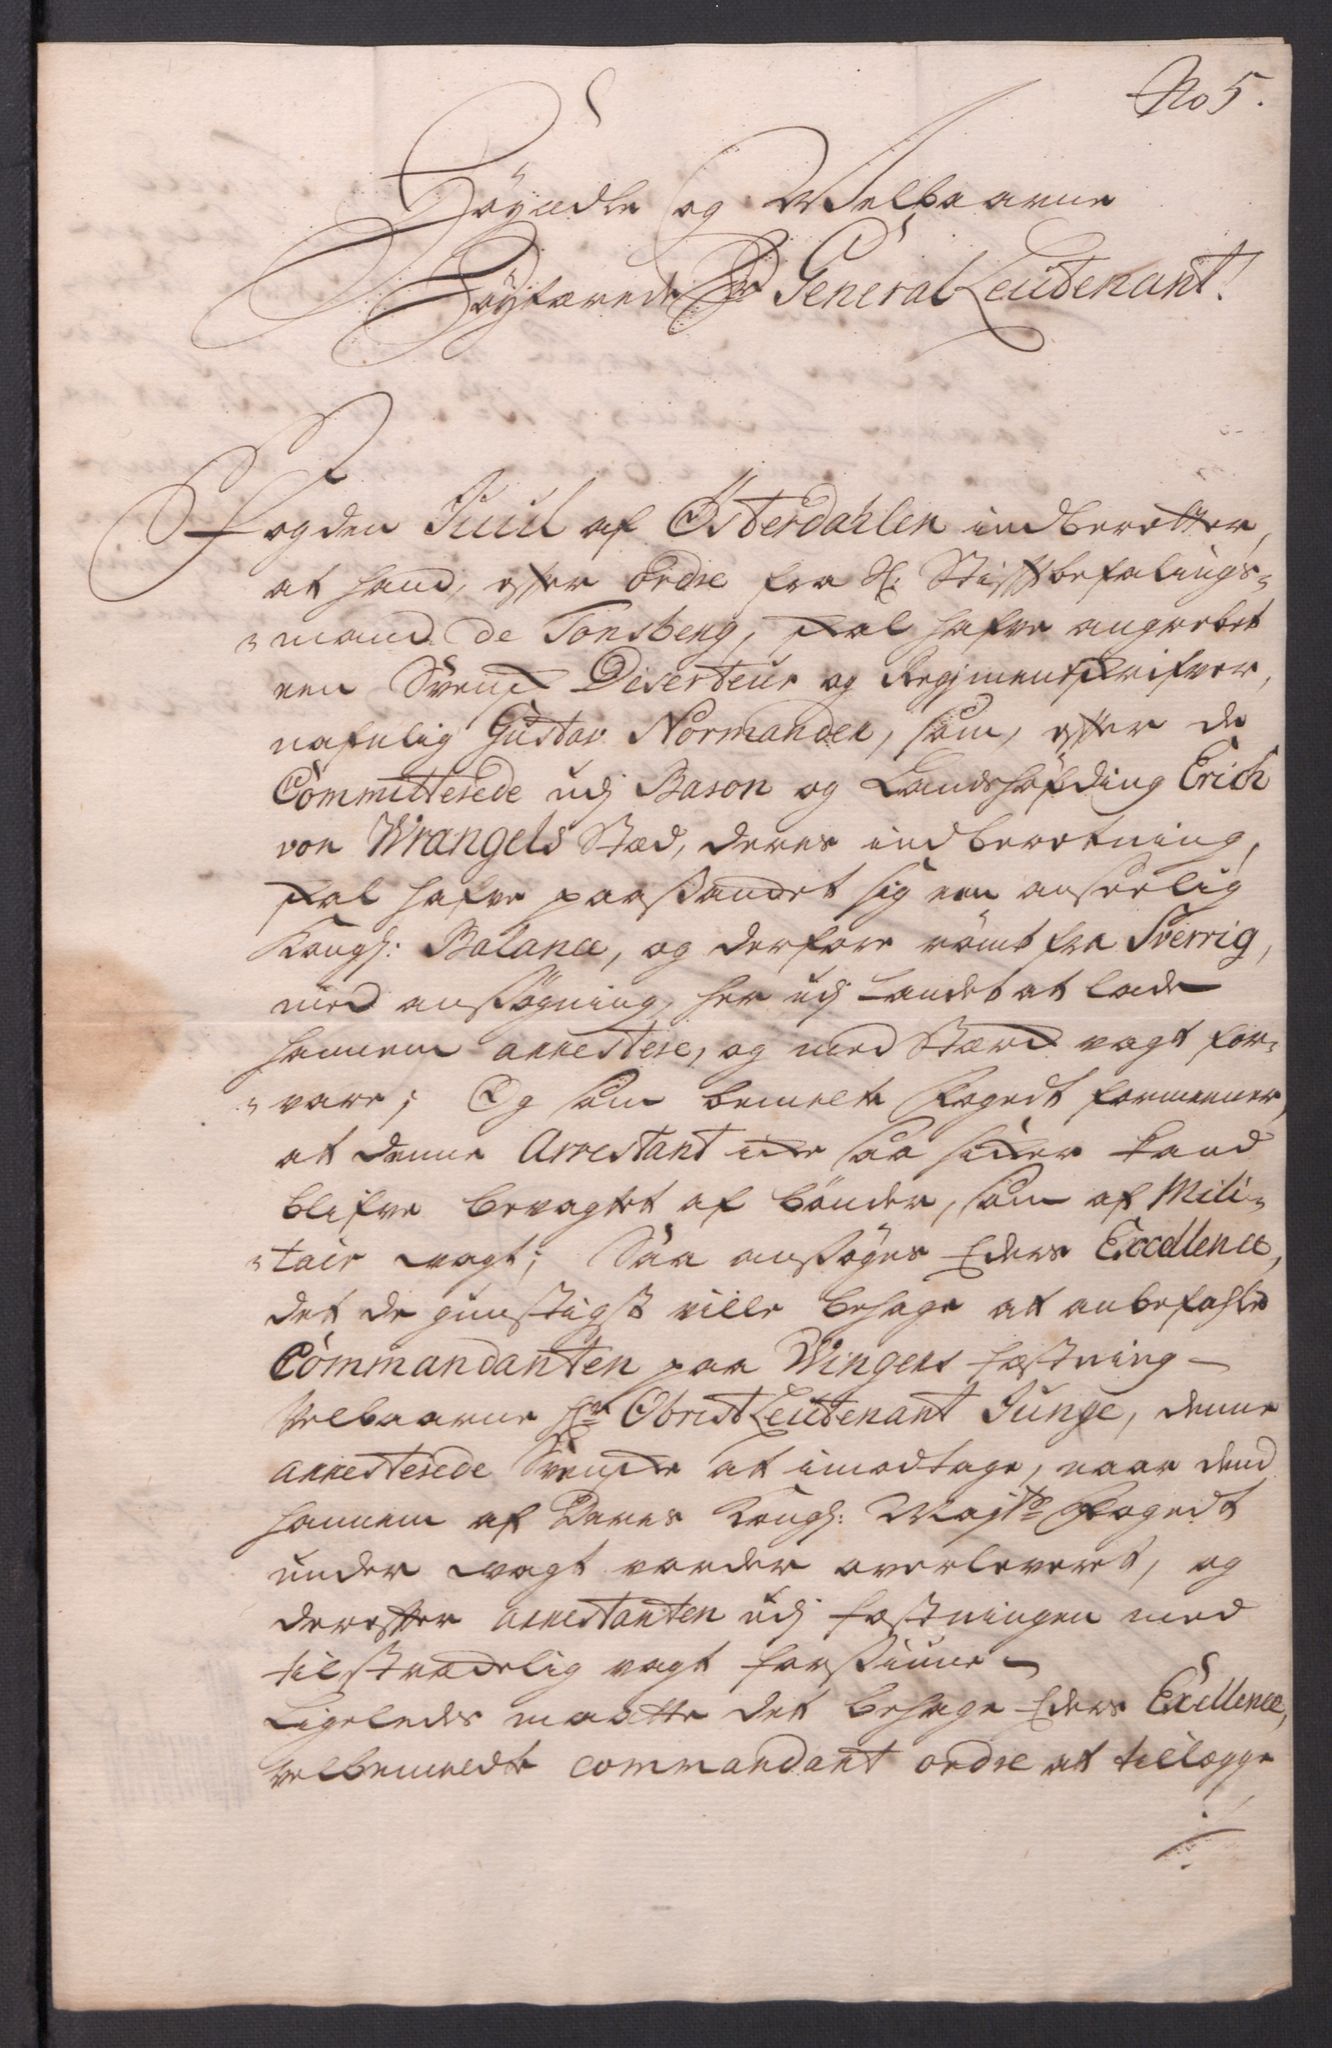 No 5.
Höyædle og Welbaarne
Höybaarede Hr General Leutenant!
Fogden Juul af Østerdahlen indberetter,
at hand, efter Ordre fra H: Stiftbefalings-
-mand de Tonsberg, skal hafve angrebet
een Svensk Deserteur og Regimentskrifver,
nafnlig Gustav Normander, som, efter de
Committerede udj Baron og Landshöfding Erich
von Wrangels Stæd, deres indberetning,
skal hafve paasandet sig een anseelig
Kongl: Balance, og derfore römt fra Sverrig,
med ansögning, her udj Landet at lade
hannem arrestere, og med Stærk vagt for-
-vare; Og som bemelte Fogedt formeener,
at denne Arrestant icke saa sicker kand
blifve bevagtet af bönder, som af Mili-
-tair vagt; Saa ansöges Eders Excellence,
det de gunstigst ville behage at anbefahle
Commandanten paa Wingers fæstning
Velbaarne Hr Obrist Leutenant Junge, denne
arresterede Svenske at imodtage, naar dend
hannem af Deres Kongl: Mayts Fogedt
under vagt vorder overleveret, og
derefter arrestanten udj fæstningen med
tilstrækelig vagt forsiune
Ligeledes maatte det behage Eders Excellence,
velbemeldte commandant ordre at tillægge